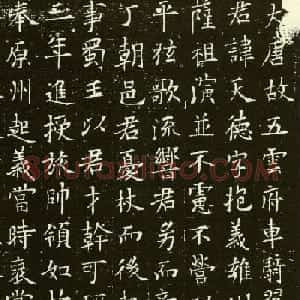 大唐故五雲府車騎
君諱天德字抱義雍
薩祖演並不憲不營
平弦歌流響君勇而
丁朝邑君憂杖而後
事蜀王以君才幹可
三年進授旅帥領如
奉原州起義當時